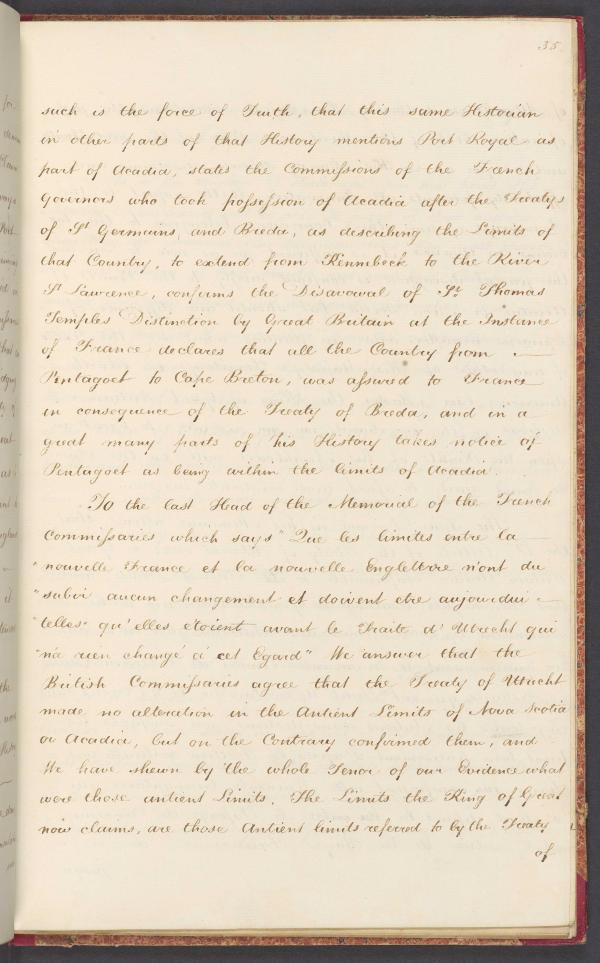 35.
such is the force of Truth, that this same Historian
in other parts of that History mentions Port Royal as
part of Acadia, states the Commissions of the French
Governors who took possession of Acadia after the Treatys
of St Germains, and Breda, as describing the Limits of
that Country, to extend from Kennibeck to the River
St Lawrence, confirms the Disavowal of Sr Thomas
Temples Distinction by Great Britain at the Instance
of France declares that all the Country from
Pentagoet to Cape Breton, was assured to France
in consequence of the Treaty of Breda, and in a
great many parts of his History takes notice of
Pentagoet as being within the limits of Acadia.
To the last Head of the Memorial of the French
Commissaries which says "Que les limites entre la
"nouvelle France et la nouvelle Englettrre n'ont du
"subir aucun changement et doivent etre aujourdui
"telles" qu'elles etoient avant le Traite d'Utrecht qui
"n'a rien changé á cet Egard" We answer that the
British Commissaries agree that the Treaty of Utrecht
made no alteration in the Antient Limits of Nova Scotia
or Acadia, but on the Contrary confirmed them, and
We have shewn by the whole Tenor of our Evidence what
were those antient Limits. The Limits the King of Great
now claims, are those Antient limits referred to by the Treaty
of